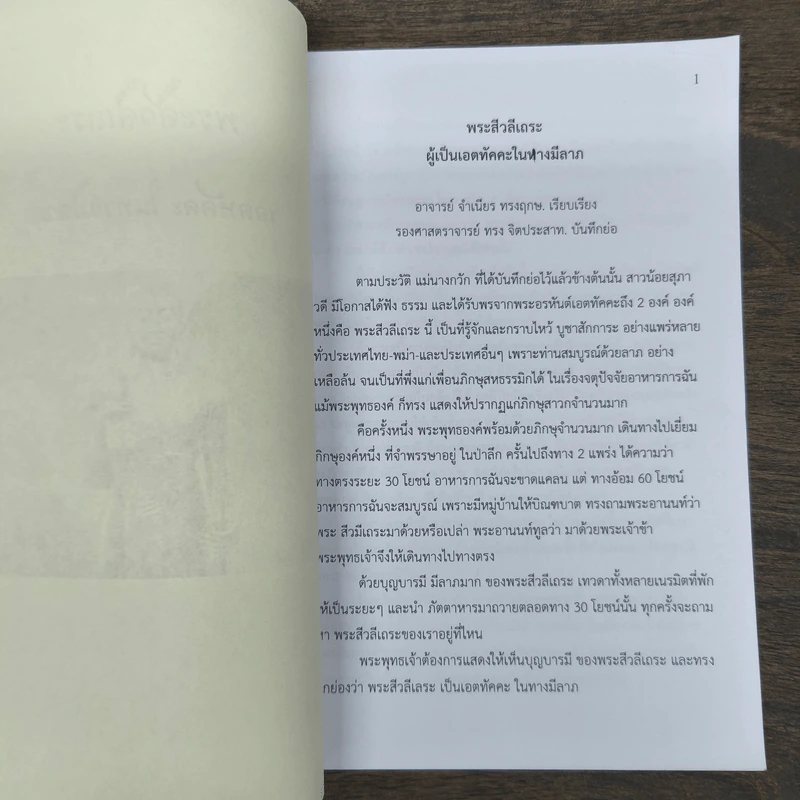 1
พระสีวลีเถระ
ผู้เป็นเอตทัคคะในทางมีลาภ
อาจารย์ จำเนียร ทรงฤกษ. เรียบเรียง
รองศาสตราจารย์ ทรง จิตประสาท. บันทึกย่อ
ตามประวัติ แม่นางกวัก ที่ได้บันทึกย่อไว้แล้วข้างต้นนั้น สาวน้อยสุภา
วดี มีโอกาสได้ฟัง ธรรม และได้รับพรจากพระอรหันต์เอตทัคคะถึง 2 องค์ องค์
หนึ่งคือ พระสีวลีเถระ นี้ เป็นที่รู้จักและกราบไหว้ บูชาสักการะ อย่างแพร่หลาย
ทั่วประเทศไทย-พม่า-และประเทศอื่นๆ เพราะท่านสมบูรณ์ด้วยลาภ อย่าง
เหลือล้น จนเป็นที่พึ่งแก่เพื่อนภิกษุสหธรรมิกได้ ในเรื่องจตุปัจจัยอาหารการฉัน
แม้พระพุทธองค์ ก็ทรง แสดงให้ปรากฏแก่ภิกษุสาวกจำนวนมาก
คือครั้งหนึ่ง พระพุทธองค์พร้อมด้วยภิกษุจำนวนมาก เดินทางไปเยี่ยม
ภิกษุองค์หนึ่ง ที่จำพรรษาอยู่ ในป่าลึก ครั้นไปถึงทาง 2 แพร่ง ได้ความว่า
ทางตรงระยะ 30 โยชน์ อาหารการฉันจะขาดแคลน แต่ ทางอ้อม 60 โยชน์
อาหารการฉันจะสมบูรณ์ เพราะมีหมู่บ้านให้บิณฑบาต ทรงถามพระอานนท์ว่า
พระ สีวมีเถระมาด้วยหรือเปล่า พระอานนท์ทูลว่า มาด้วยพระเจ้าข้า
พระพุทธเจ้าจึงให้เดินทางไปทางตรง
ด้วยบุญบารมี มีลาภมาก ของพระสีวลีเถระ เทวดาทั้งหลายเนรมิตที่พัก
ให้เป็นระยะๆ และนำ ภัตตาหารมาถวายตลอดทาง 30 โยชน์นั้น ทุกครั้งจะถาม
หา พระสีวลีเถระของเราอยู่ที่ไหน
พระพุทธเจ้าต้องการแสดงให้เห็นบุญบารมี ของพระสีวลีเถระ และทรง
กย่องว่า พระสีวลีเลระ เป็นเอตทัคคะ ในทางมีลาภ